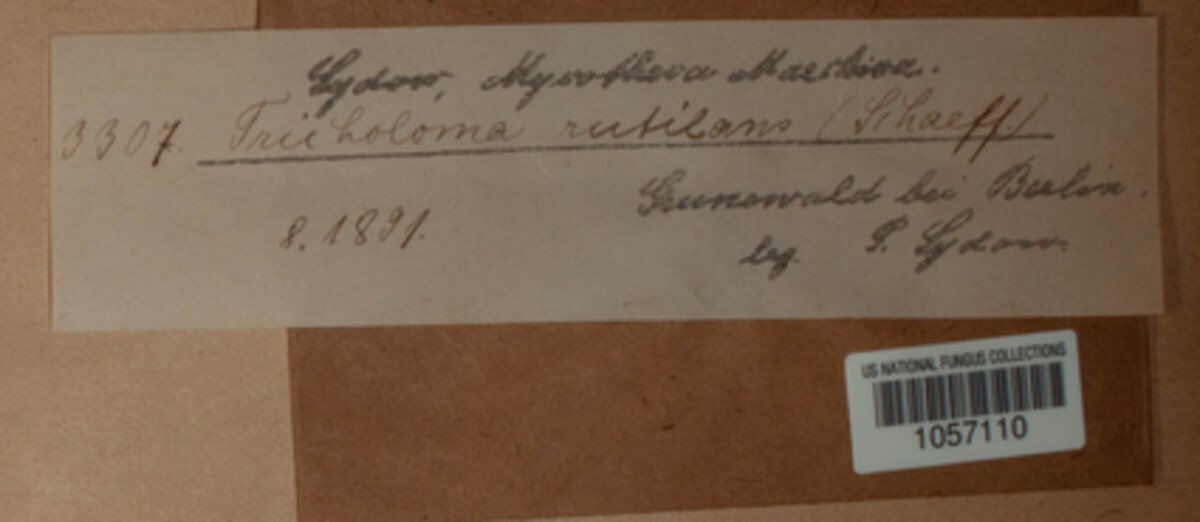 Sydow, Mycotheca Marchica.
3307. Tricholoma rutilans (Schaeff.)
Grunewald bei Berlin.
8. 1891.
leg. P. Sydow.
US NATIONAL FUNGUS COLLECTIONS
1057110